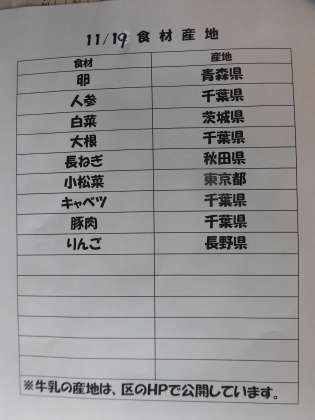 11/19 食材産地
食材 産地
卵 青森県
人参 千葉県
白菜 茨城県
大根 千葉県
長ねぎ 秋田県
小松菜 東京都
キャベツ 千葉県
豚肉 千葉県
りんご 長野県
※牛乳の産地は、区のHPで公開しています。